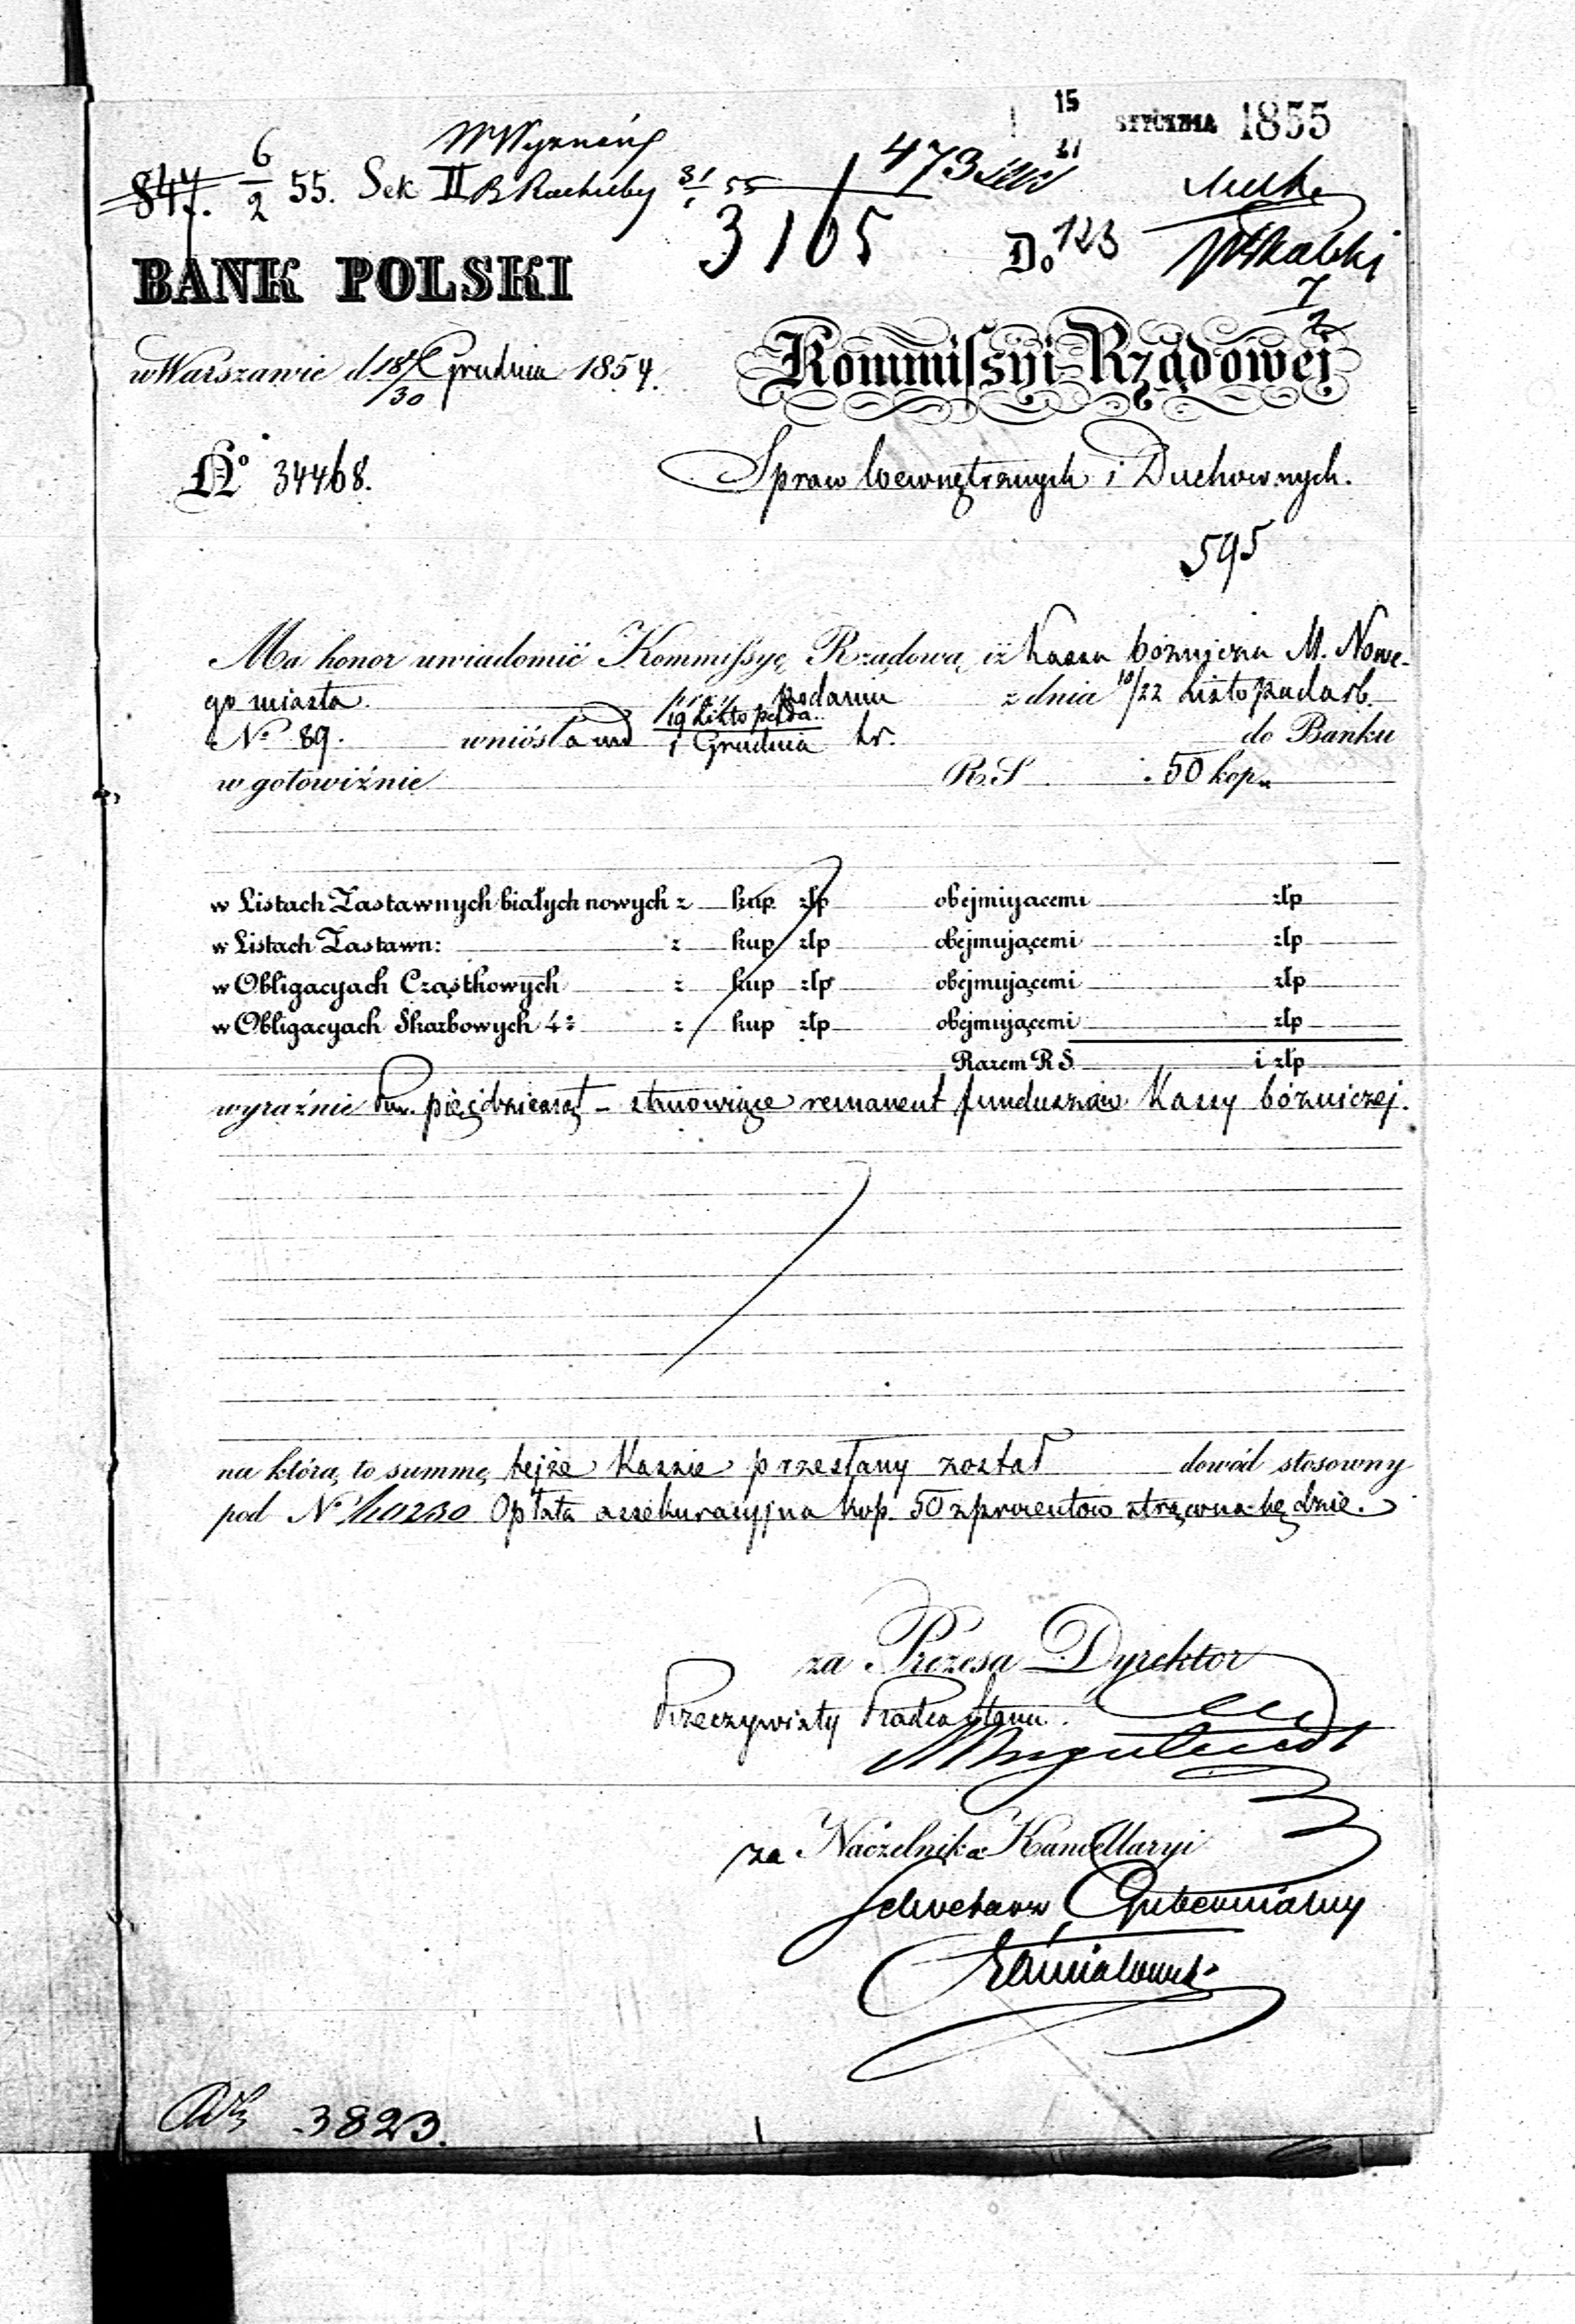 15
27 STYCZNIA 1855
847. 6/2 55. Sek II B Rachuby 31/1 55
473
3165
Do 123
7/2
BANK POLSKI
w Warszawie d. 18/30 Grudnia 1854.
Kommissyi Rządowej
No 34468.
Spraw Wewnętrznych i Duchownych.
595
Ma honor uwiadomić Kommissyę Rządową iż Kassa bożnicza M. Nowe-
go miasta przy podaniu z dnia 10/22 Listopada rb.
No 89. wniosła pod 19 Listopada / 1 Grudnia t.r. do Banku
w gotowiźnie R.S. 50 kop.
w Listach Zastawnych białych nowych z kup złp obejmującemi złp
w Listach Zastawn: z kup złp obejmującemi złp
w Obligacyach Cząstkowych z kup złp obejmującemi złp
w Obligacyach Skarbowych 4% z kup złp obejmującemi złp
Razem R S i złp
wyraźnie pięćdziesiąt – stanowiące remanent funduszów Kassy bóżniczej.
na którą to summę tejże Kassie przesłany został dowód stosowny
pod No Opłata assekuracyjna kop. 50 z procentów strącona będzie.
za Prezesa Dyrektor
Rzeczywisty Radca Stanu.
za Naczelnika Kancellaryi
Sekretarz Gubernialny
3823.